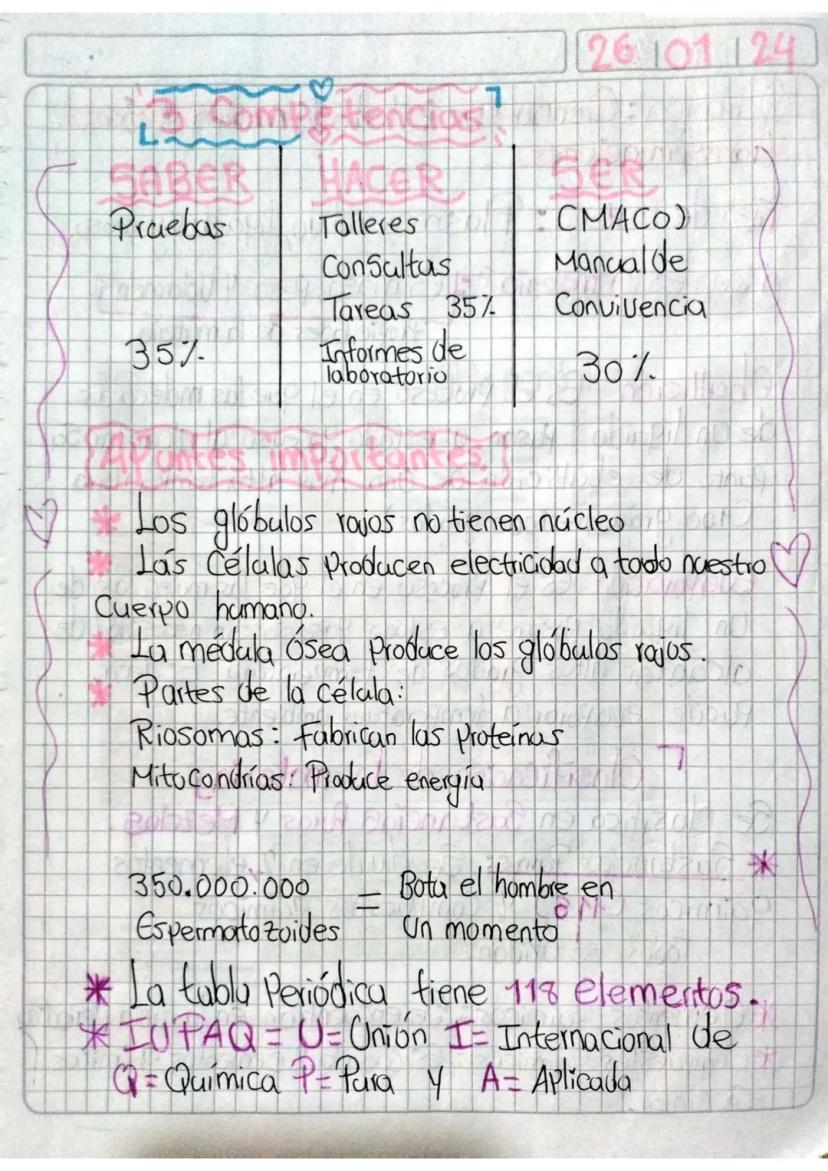 26 | 01 | 24
3 Competencias
SABER
Pruebas
35%
HACER
Talleres
Consultas
Tareas 35%
Informes de
laboratorio
SER
: CMACO)
Manual de
Convivencia
30%
Apuntes importantes
* Los glóbulos rojos no tienen núcleo
* Lás Células Producen electricidad a todo nuestro
Cuerpo humano.
* La médula Ósea Produce los glóbulos rojos.
* Partes de la célula:
Riosomas: Fabrican las Proteínas
Mitocondrías: Produce energía
350.000.000 = Bota el hombre en
Espermatozoides un momento
* La tabla Periódica tiene 118 elementos.
* IUPAQ = U= Unión I= Internacional de
Q= Química P= Pura y A= Aplicada